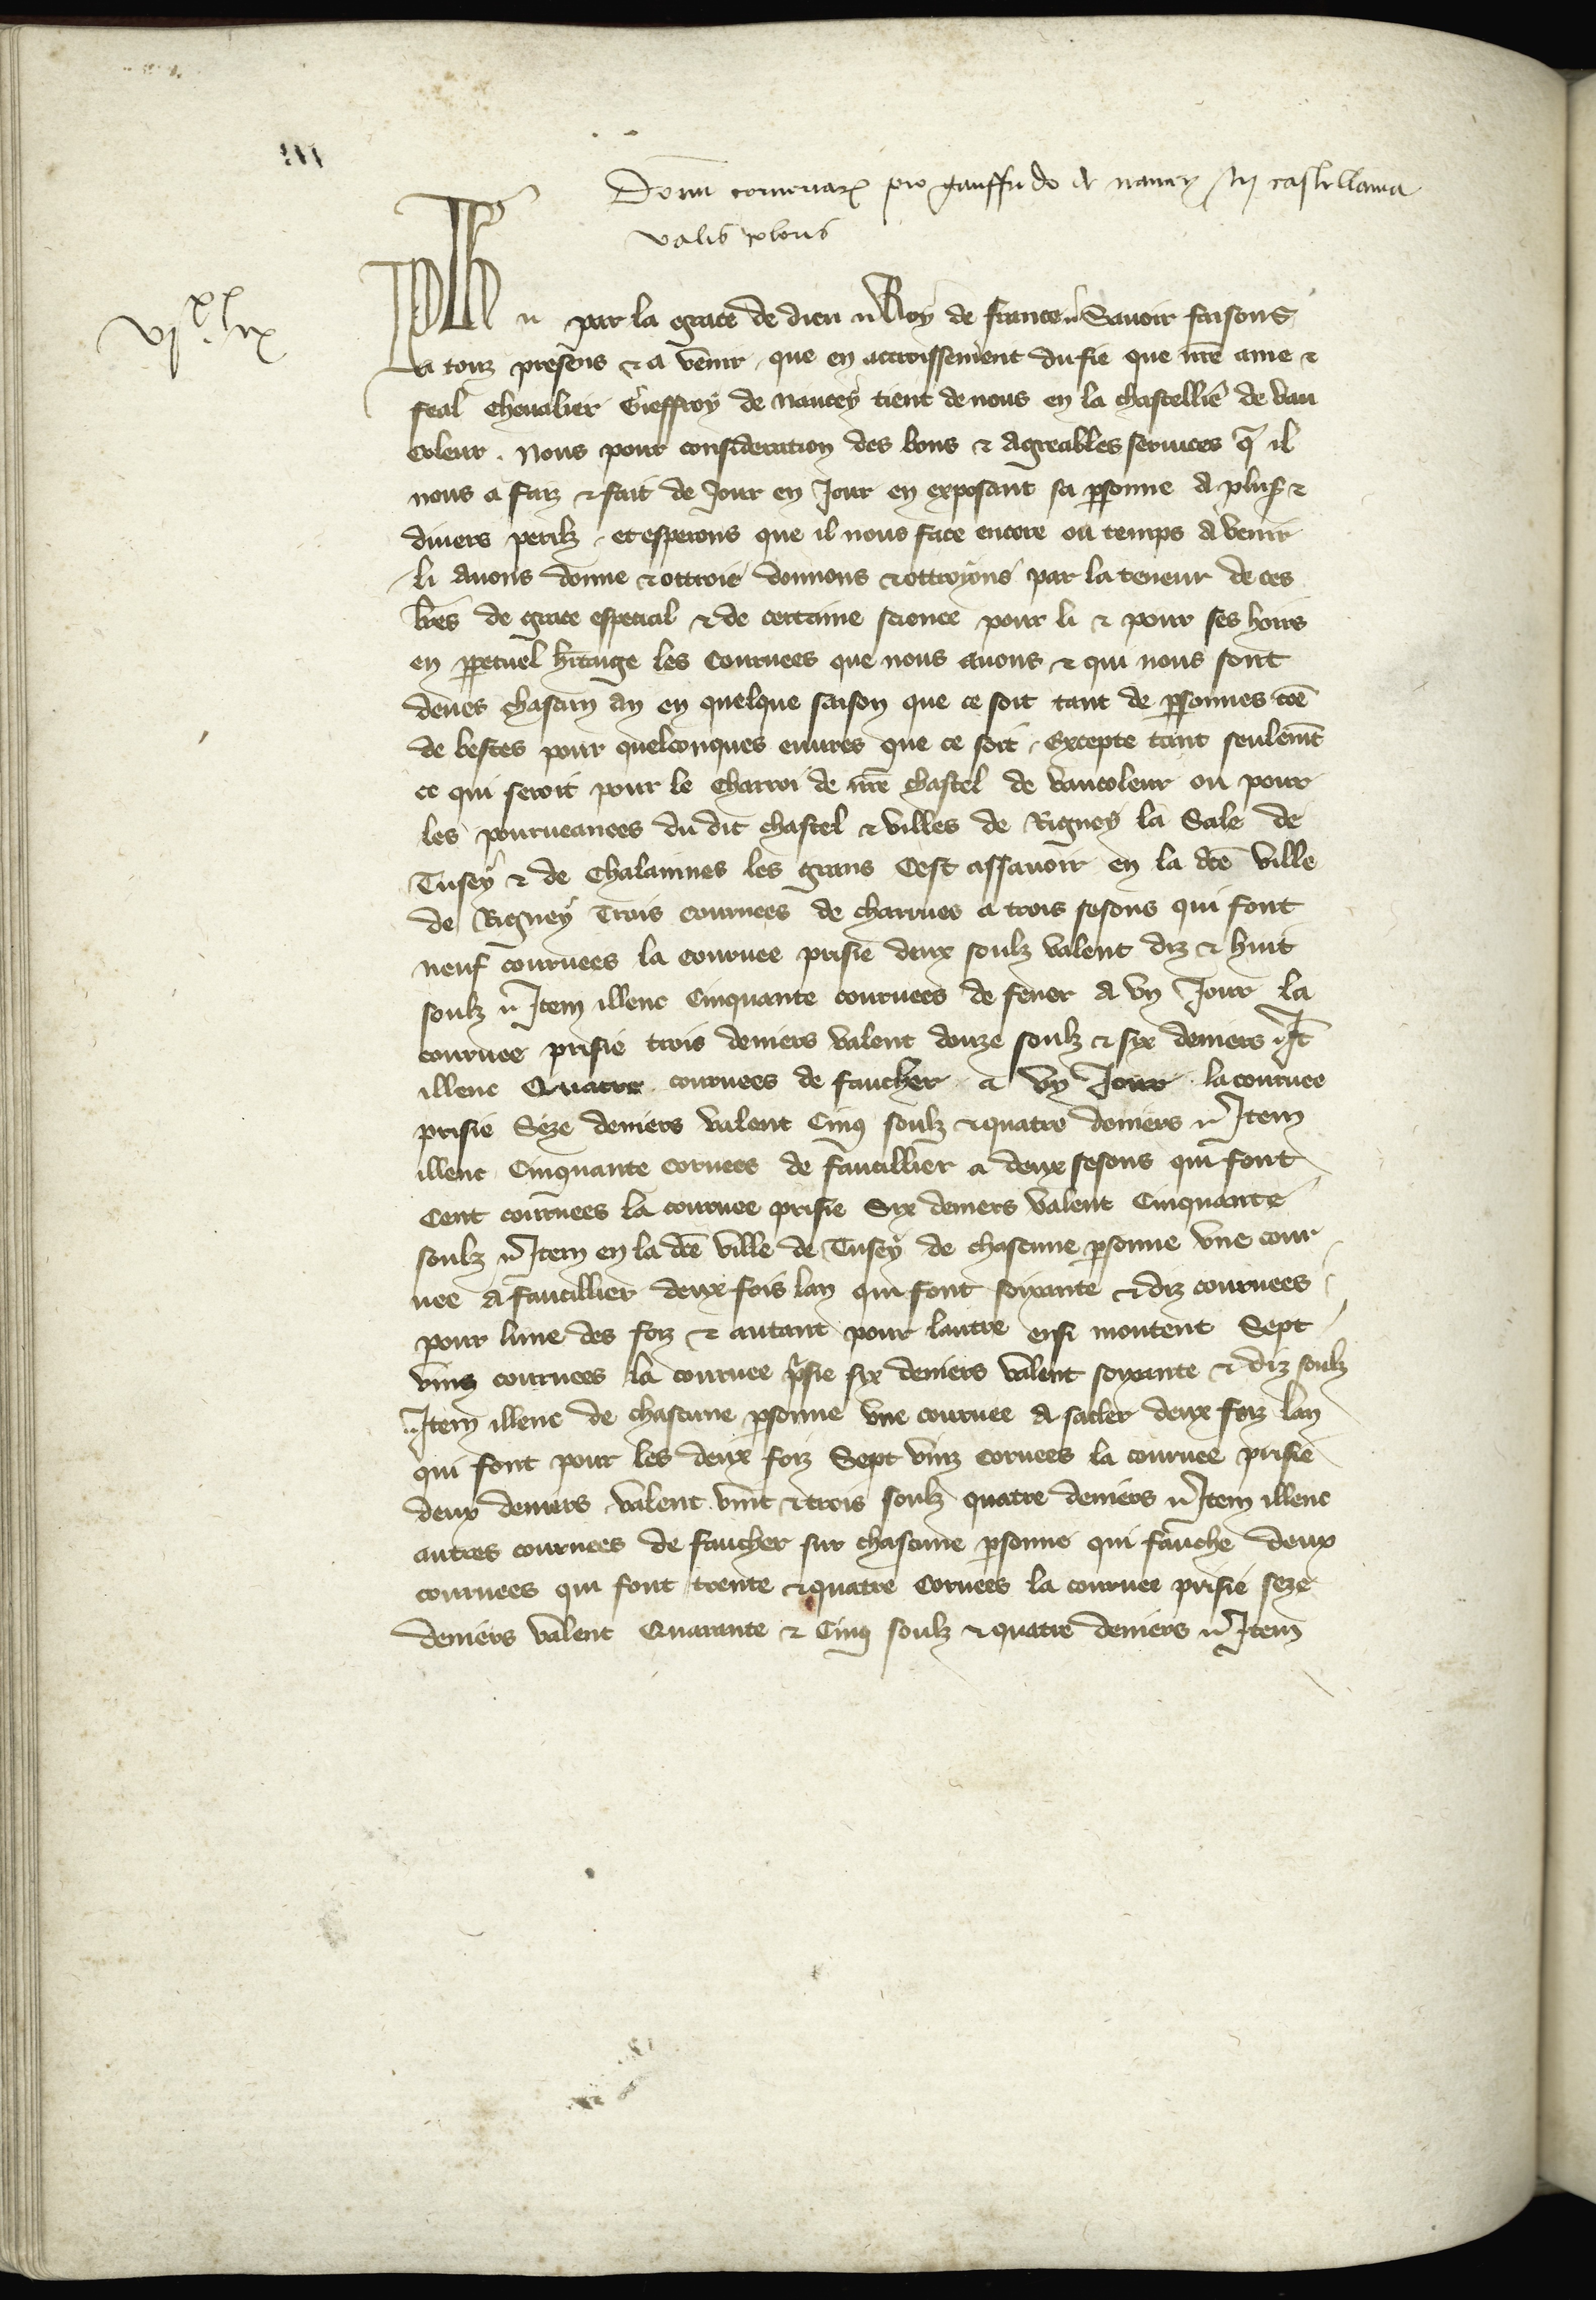 Donum corveiarum pro gauffrido de nancey in castellania
vallis coloris
vi^c lix
Jehan par la grace de dieu Roy de france Savoir faisons
a touz presens & a venir que en accroissement du fie que nre ame &
feal chevalier Gieffroy de Nancey tient de nous en la chastellie de vau
coleur. Nous pour consideration des bons & agreables services q il
nous a faiz & fait de Jour en Jour en exposant sa psonne a plus &
divers perilz et esperons que il nous face encore ou temps a venir
li avons donne & ottroie donnons & ottroyons par la teneur de ces
lres de grace especial & de certaine science pour li & pour ses hoirs
en ppetuel hitaige les Courvees que nous avons & qui nous sont
deues chascun an en quelque saison que ce soit tant de psonnes coe
de bestes pour quelconques euvres que ce soit Excepte tant seulemt
ce qui seroit pour le charroi de nre chastel de vaucoleur ou pour
les pourveances du dit chastel & villes de Rigney la Sale de
Tusey & de Chalaines les grans Cest assavoir en la dce ville
de Rigney Trois courvees de charrues a trois sesons qui font
neuf courvees la courvee prisie deux soulz valent diz & huit
soulz Item illenc Cinquante courvees de fener a un Jour la
courvee prisie trois deniers valent douze soulz & six deniers It
illenc Quatre courvees de faucher a un Jour la courvee
prisie Seze deniers valent Cinq soulz & quatre deniers Item
illenc Cinquante corvees de faucillier a deux sesons qui font
Cent courvees la courvee prisie Six deniers valent Cinquante
soulz Item en la dce ville de Tusey de chascune psonne une cour
vee a faucillier deux fois lan qui font soixante & diz courvees
pour lune des foiz & autant pour lautre ensi montent Sept
vins courvees la courvee prisie six deniers valent soixante & diz soulz
Item illenc de chascune psonne une courvee a sacler deux foiz lan
qui font pour les deux foiz Sept vinz corvees la courvee prisie
deux deniers valent vint & trois soulz quatre deniers Item illenc
autres courvees de faucher sur chascune psonne qui fauche deux
courvees qui font trente & quatre Corvees la courvee prisie seze
deniers valent Quarante & Cinq soulz & quatre deniers Item